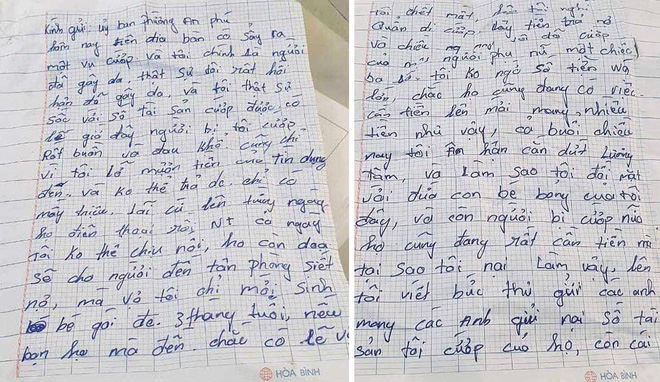 Kính gửi ủy ban phường An phú
hôm nay trên địa bàn có sảy ra
một vụ cướp và tôi chính là người
đã gây da, thật sự tôi rất hối
hận đã gây da, và tôi thật sự
sốc với số tài sản cướp được, có
lẽ giờ đây người bị tôi cướp
Rất buồn và đau khổ cũng chỉ
vì tôi lỡ mượn tiền của tín dụng
đen. và ko thể trả dc. chỉ có
mấy triệu. lãi cứ lên từng ngày
họ điện thoại rồi NT cả ngày
Tôi ko thể chịu nổi, họ còn dọa
sẽ cho người đến tận phòng siết
nợ, mà vợ tôi chỉ mới sinh
bé gái đc. 3 tháng tuổi, nếu
bọn họ mà đến. chắc có lẽ vợ
HÒA BÌNH
tôi chết mất, tôi nghĩ
Quẩn đi cướp lấy tiền trả nợ
và chiều tôi đã cướp
của người phụ nữ một chiếc
ba lô. tôi ko ngờ số tiền wá
lớn, chắc họ cũng đang có việc
cần tiền lên mới mang nhiều
tiền như vậy, cả buổi chiều
nay tôi ân hận cắn dứt Lương
Tâm, và Làm sao tôi đối mặt
với đứa con bé bỏng của tôi
đây, và con người bị cướp nữa
họ cũng đang rất cần tiền mà
tại sao tôi nại Làm vậy, lên
tôi viết bức thư gửi các anh
mong các Anh gửi nại số tài
sản tôi cướp của họ, còn cái
HÒA BÌNH